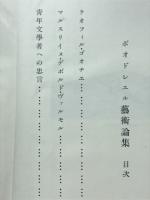 ボオドレエル藝術論集 目次
テオフィル・ゴオチエ…………
マルスリイヌ・デボルド・ヴァルモル…………
青年文學者への忠言…………